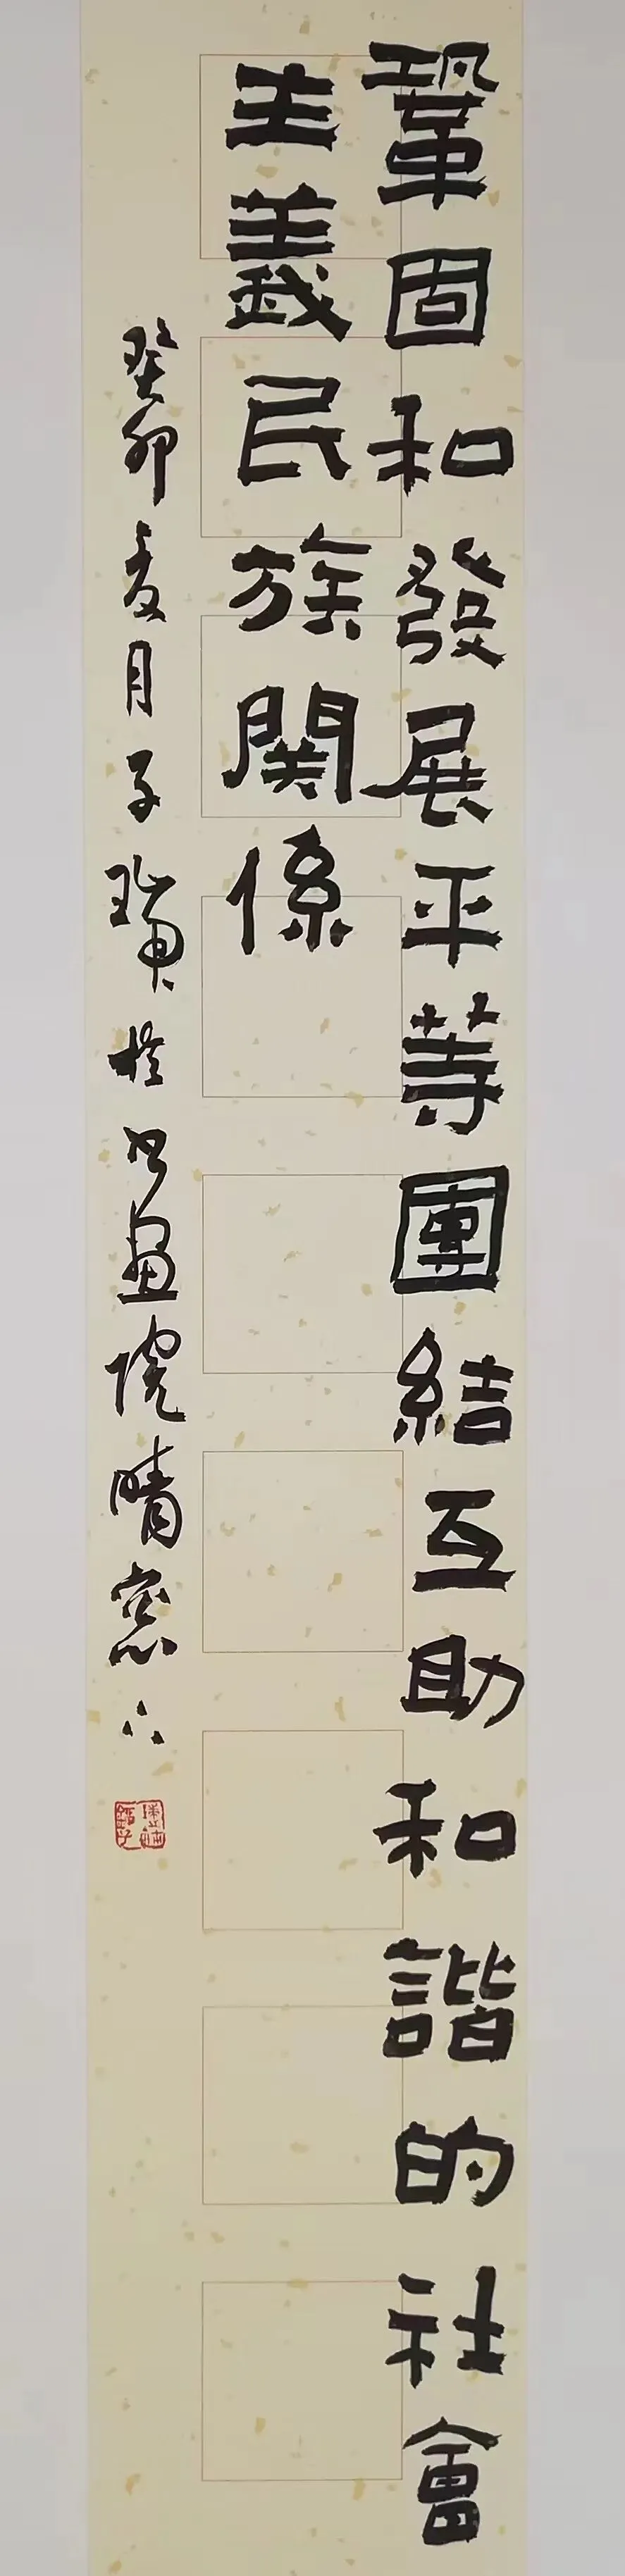 鞏固和發展平等團結互助和諧的社會
主義民族關係
癸卯夏月子瑞於書畫院晴窗下